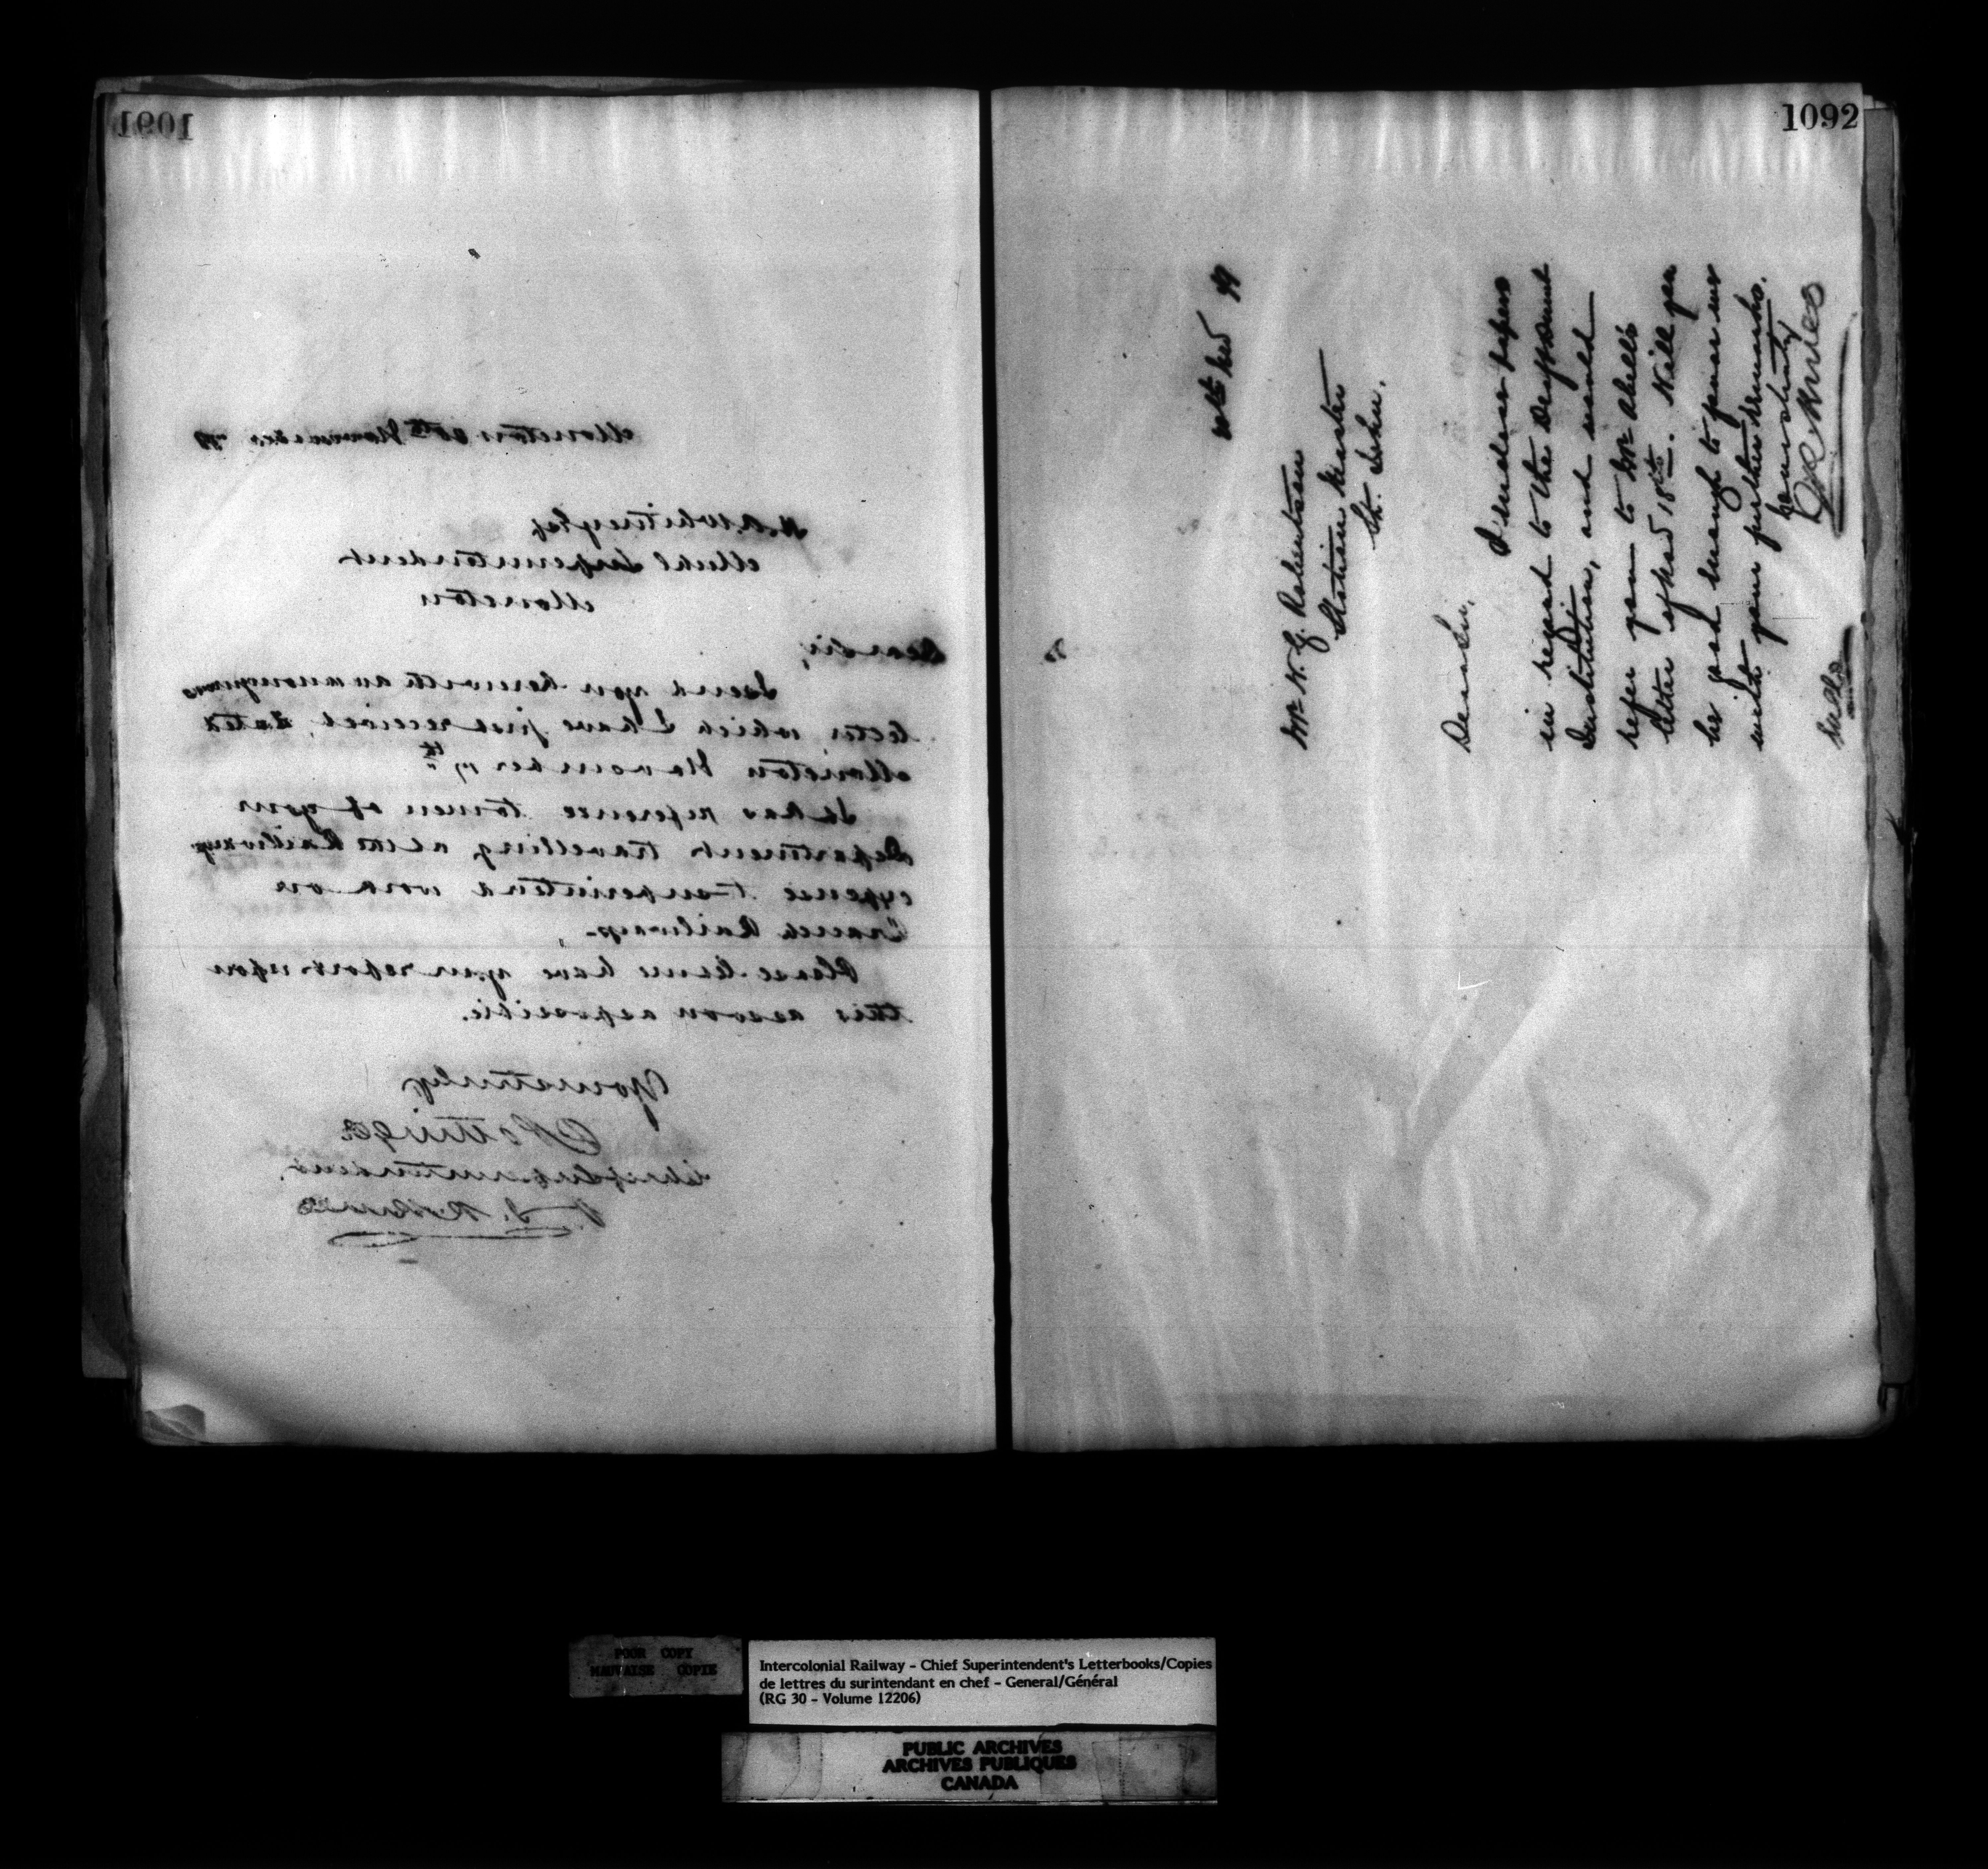 1091
Moncton 20th November '79
H. A. Whitney Esq
Mechl Superintendent
Moncton
Dear Sir,
I send you herewith an anonymous
letter which I have just received, dated
Moncton November 17th
It has reference to men of your
Department travelling at the Railway
expense to superintend work on
Branch Railways.
Please let me have your report upon
this as soon as possible.
Yours truly
D Pottinger
Chief Superintendent
1092
20th Nov 79
Mr N. G. Robertson
Station Master
St. John.
Dear Sir,
I enclose papers
in regard to the Deaf & Dumb
Institution, and would
refer you to Mr Abell's
letter of Nov 18th. Will you
be good enough to peruse and
write your further remarks.
Yours truly
POOR COPY
MAUVAISE COPIE
Intercolonial Railway - Chief Superintendent's Letterbooks/Copies
de lettres du surintendant en chef - General/Général
(RG 30 - Volume 12206)
PUBLIC ARCHIVES
ARCHIVES PUBLIQUES
CANADA